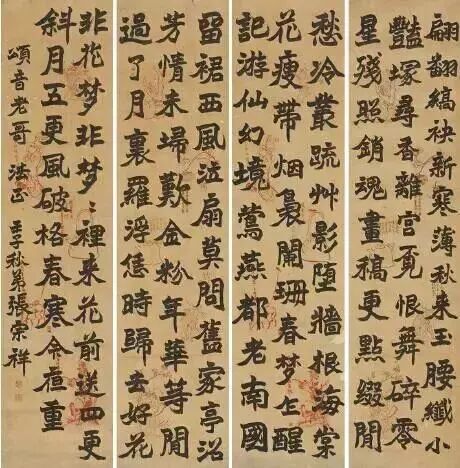 翩翻縞袂新寒薄秋來玉腰纖小
豔塚尋香離宮覓恨舞碎零
星殘照銷魂畫稿更點綴閒
愁冷叢疏艸影墮牆根海棠
花瘦帶烟裊闌珊春夢乍醒
記游仙幻境鶯燕都老南國
留裙西風泣扇莫問舊家亭沼
芳情未埽歎金粉年華等閒
過了月裏羅浮恁時歸去好花
非花夢非夢〻裡來花前送四更
斜月五更風破格春寒令重
頌音老哥 法正 壬子秋弟張宗祥